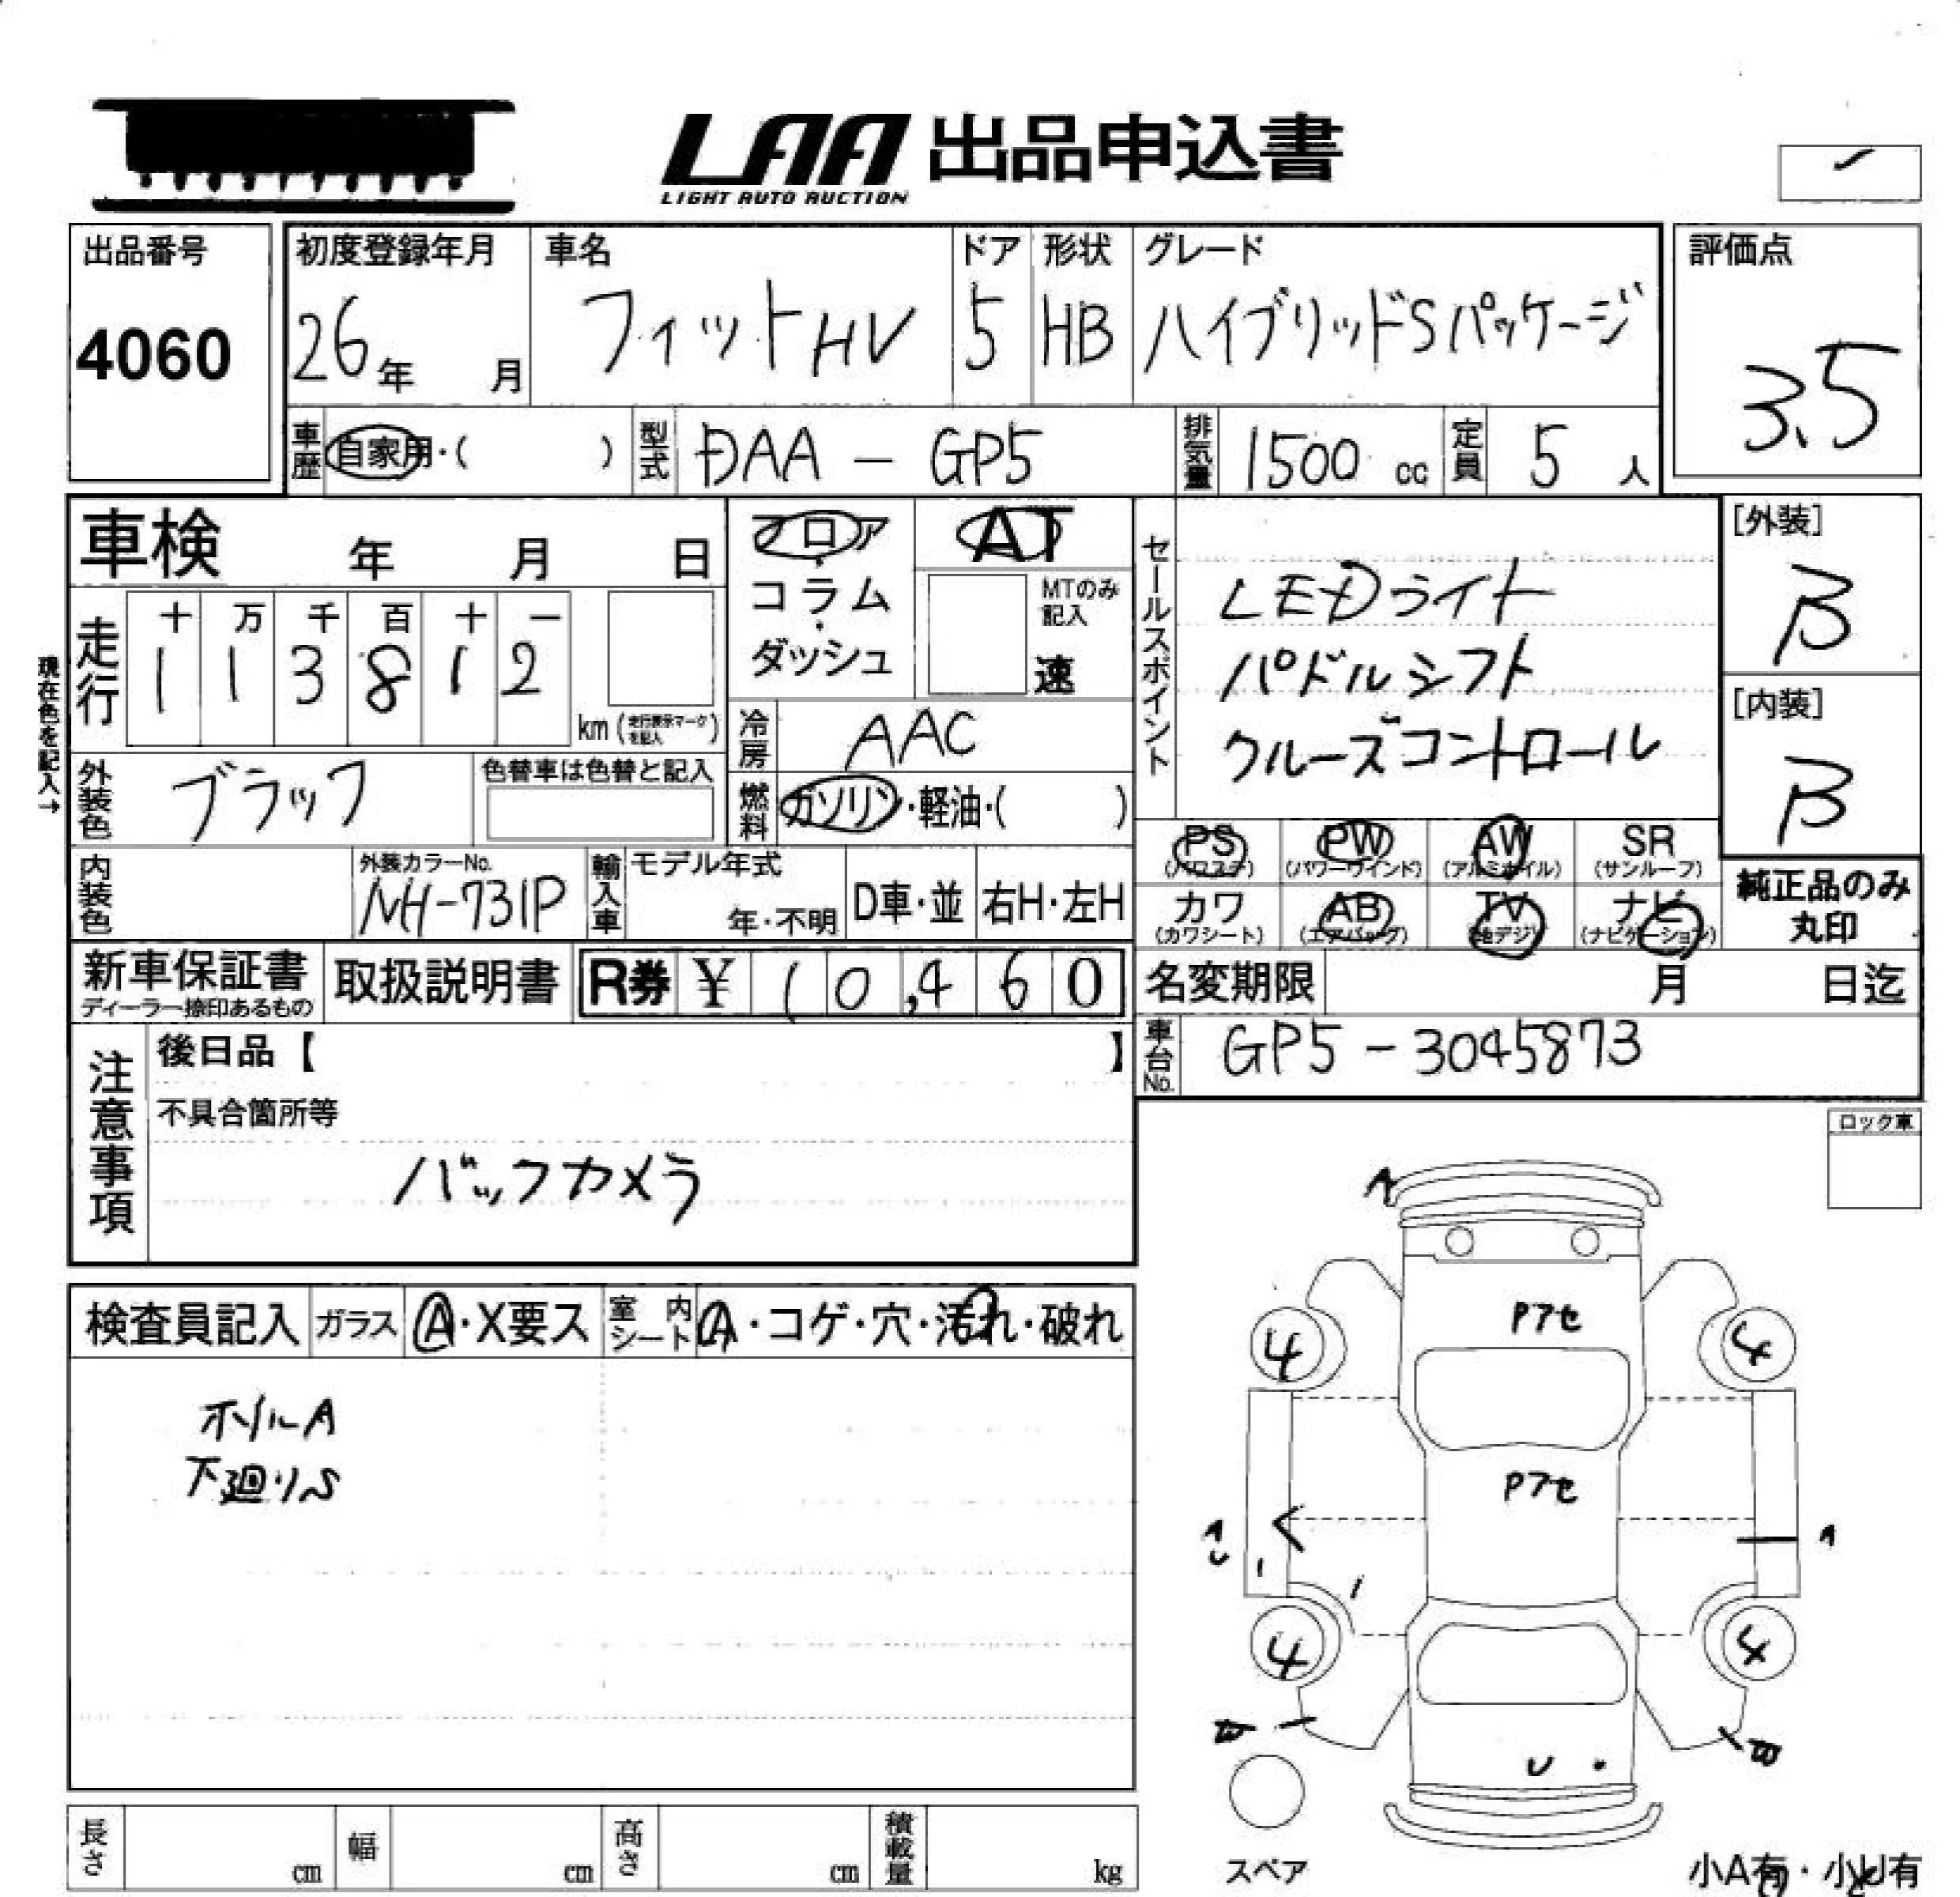 LAA 出品申込書
LIGHT AUTO AUCTION
出品番号
4060
初度登録年月
26年 月
車名
フィットHV
ドア
5
形状
HB
グレード
ハイブリッドSパッケージ
評価点
3.5
車歴 自家用・( )
型式 DAA - GP5
排気量 1500 cc
定員 5 人
車検 年 月 日
現在色を記入→
走行
十 万 千 百 十 一
1 1 3 8 1 2
km (走行表示マークを記入)
フロア・コラム・ダッシュ
AT
MTのみ記入
速
冷房 AAC
燃料 ガソリン・軽油・( )
外装色 ブラック
色替車は色替と記入
内装色
外装カラーNo.
NH-731P
輸入車
モデル年式
年・不明
D車・並
右H・左H
セールスポイント
LEDライト
パドルシフト
クルーズコントロール
[外装]
B
[内装]
B
PS (パワステ)
PW (パワーウインド)
AW (アルミホイル)
SR (サンルーフ)
カワ (カワシート)
AB (エアバッグ)
TV (地デジ)
ナビ (ナビゲーション)
純正品のみ
丸印
新車保証書
ディーラー捺印あるもの
取扱説明書
R券 ¥ 10,460
名変期限 月 日迄
車台No. GP5-3045873
注意事項
後日品【 】
不具合箇所等
バックカメラ
ロック車
検査員記入
ガラス A・X要ス
室内シート A・コゲ・穴・汚れ・破れ
ホイルA
下廻りS
A
Pアセ
4 4
Pアセ
A
U
A
4 4
U
スペア
長さ cm
幅 cm
高さ cm
積載量 kg
小A有・小U有